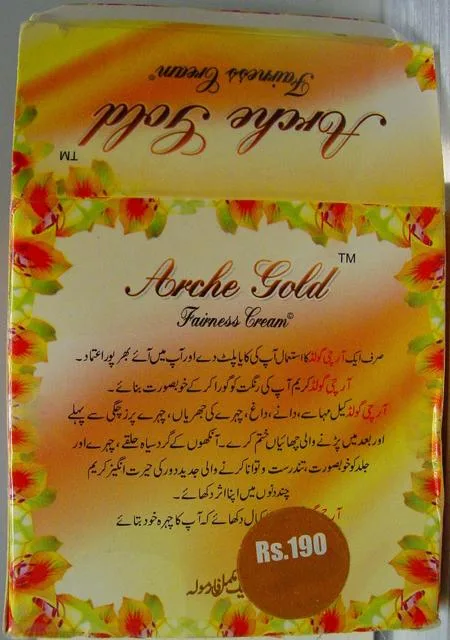 Arche Gold
Fairness Cream®
TM
Arche Gold
TM
Fairness Cream©
صرف ایک آرچی گولڈ کا استعمال آپ کی کایا پلٹ دے اور آپ میں آئے بھرپور اعتماد۔
آرچی گولڈ کریم آپ کی رنگت کو گورا کر کے خوبصورت بنائے۔
آرچی گولڈ کیل مہاسے، دانے، داغ، چہرے کی جھریاں، چہرے پر زچگی سے پہلے
اور بعد میں پڑنے والی چھائیاں ختم کرے۔ آنکھوں کے گرد سیاہ حلقے، چہرے اور
جلد کو خوبصورت، تندرست و توانا کرنے والی جدید دور کی حیرت انگیز کریم
چند دنوں میں اپنا اثر دکھائے۔
کمال دکھائے کہ آپ کا چہرہ خود بتائے
Rs.190
مکمل فارمولہ